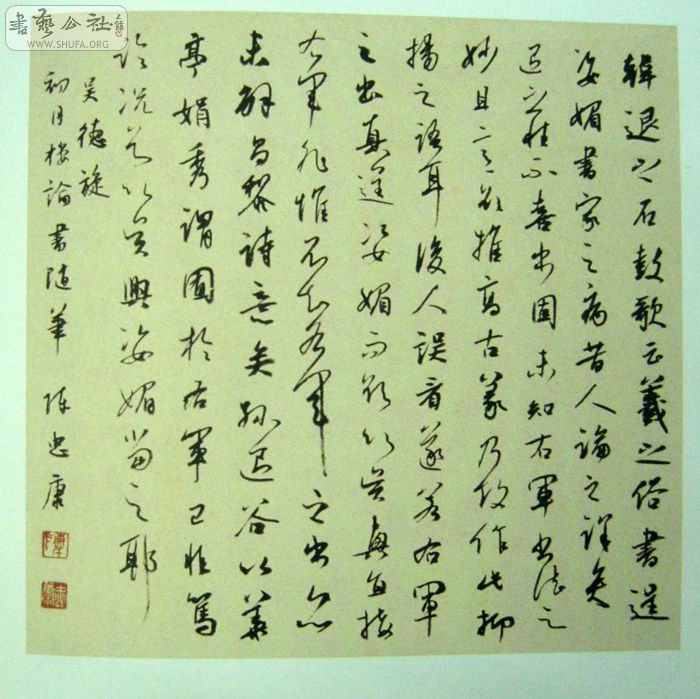 韓退之石鼓歌云羲之俗書逞
姿媚書家之病昔人論之詳矣
退之雅不喜書固未知右軍書法之
妙且意欲推高古篆乃故作此抑
揚之語耳後人誤看遂若右軍
之書真逞姿媚而欲以吳興直接
右軍非惟不知右軍之書亦
未解昌黎詩意矣孫退谷以蘭
亭娟秀謂囿於右軍已非篤
論況以吳興姿媚當之耶
吳德旋
初月樓論書隨筆 陳忠康
書藝公社
WWW.SHUFA.ORG